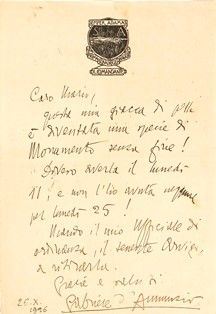 SEMPER ADAMAS
IL COMANDANTE
Caro Mario,
questa mia giacca di pelle
è diventata una specie di
Monumento senza fine!
Dovevo averla il lunedì
11! e non l'ho avuta neppure
per lunedì 25!
Mando il mio Ufficiale di
ordinanza, il tenente
a ritirarla.
Grazie e saluti
Gabriele d'Annunzio
26.X.
1926